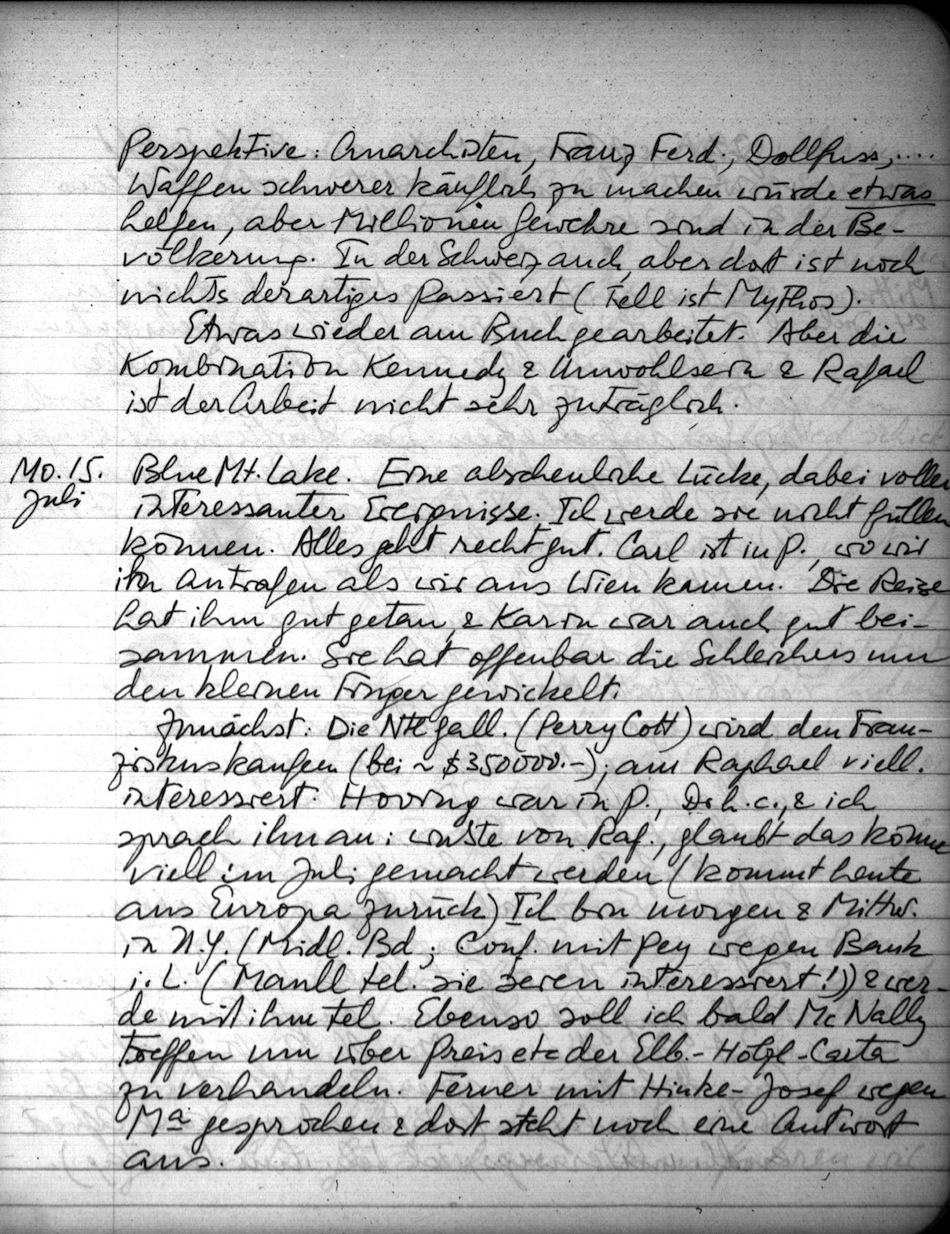 Perspektive: Anarchisten, Franz Ferd., Dollfuss,....
Waffen schwerer käuflich zu machen würde etwas
helfen, aber Millionen Gewehre sind in der Be-
völkerung. In der Schweiz auch, aber dort ist noch
nichts derartiges passiert (Tell ist Mythos).
Etwas wieder am Buch gearbeitet. Aber die
Kombination Kennedy & Unwohlsein & Rafael
ist der Arbeit nicht sehr zuträglich.
Mo. 15. Blue Mt. Lake. Eine abscheuliche Lücke, dabei voller
Juli interessanter Ereignisse. Ich werde sie nicht füllen
können. Alles geht recht gut. Carl ist in P., wo wir
ihn antrafen als wir aus Wien kamen. Die Reise
hat ihm gut getan, & Karin war auch gut bei-
sammen. Sie hat offenbar die Schleichers um
den kleinen Finger gewickelt.
Zunächst: Die Ntl Gall. (Perry Cott) wird den Fran-
ziskus kaufen (bei ~ $350000.-); am Raphael viell.
interessiert. Hoving war in P., Dr. h. c., & ich
sprach ihn an: wusste von Raf., glaubt das könne
viell im Juli gemacht werden (kommt heute
aus Europa zurück) Ich bin morgen & Mittw.
in N.Y. (Midl. Bd.; Conf. mit Pey wegen Bank
i. L. (Manll tel. sie seien interessiert!)) & wer-
de mit ihm tel. Ebenso soll ich bald McNally
treffen um über Preis etc der Elb.-Holzl-Carta
zu verhandeln. Ferner mit Hinke-Josef wegen
Ma gesprochen & dort steht noch eine Antwort
aus.